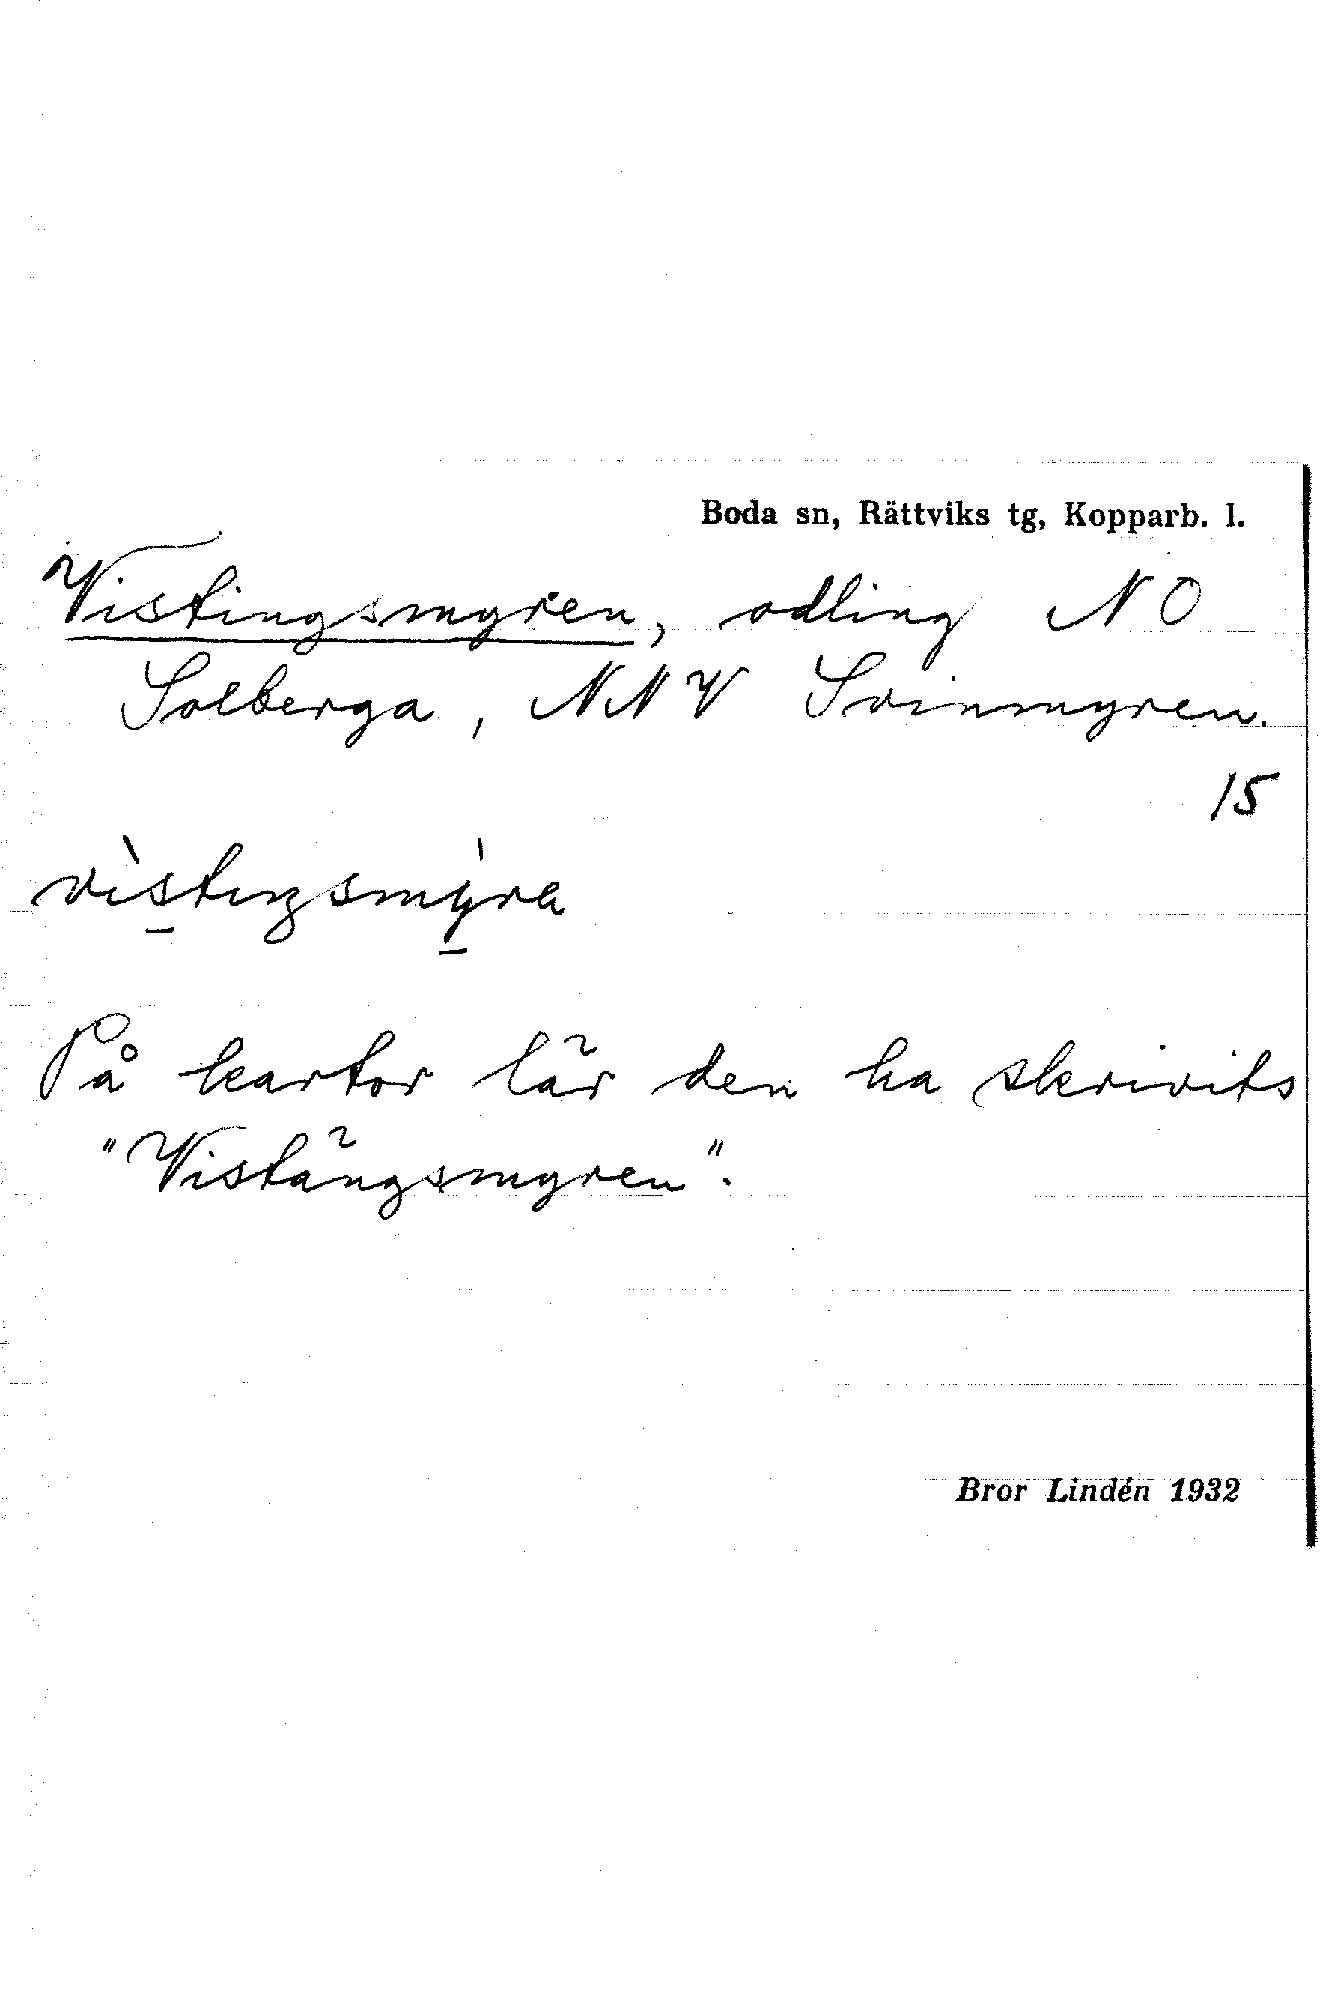 Boda sn, Rättviks tg, Kopparb. l.
Vistingsmyren, odling NO
Solberga, NNV Svinmyren.
15
vìstiŋsmỳra
På kartor lär den ha skrivits
"Vistängsmyren".
Bror Lindén 1932